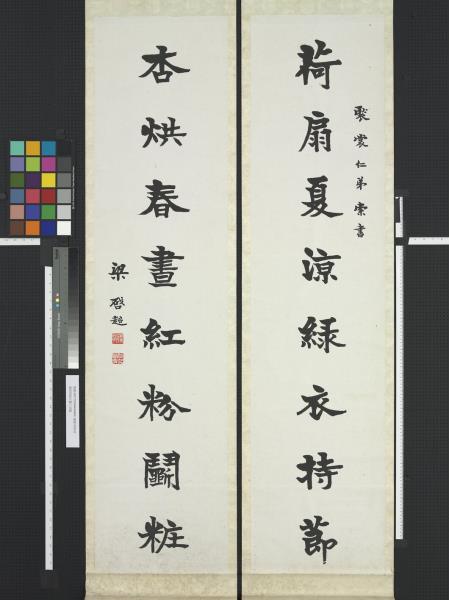 聚裳仁弟索書
荷扇夏涼綠衣持節
杏烘春晝紅粉鬭粧
梁啓超